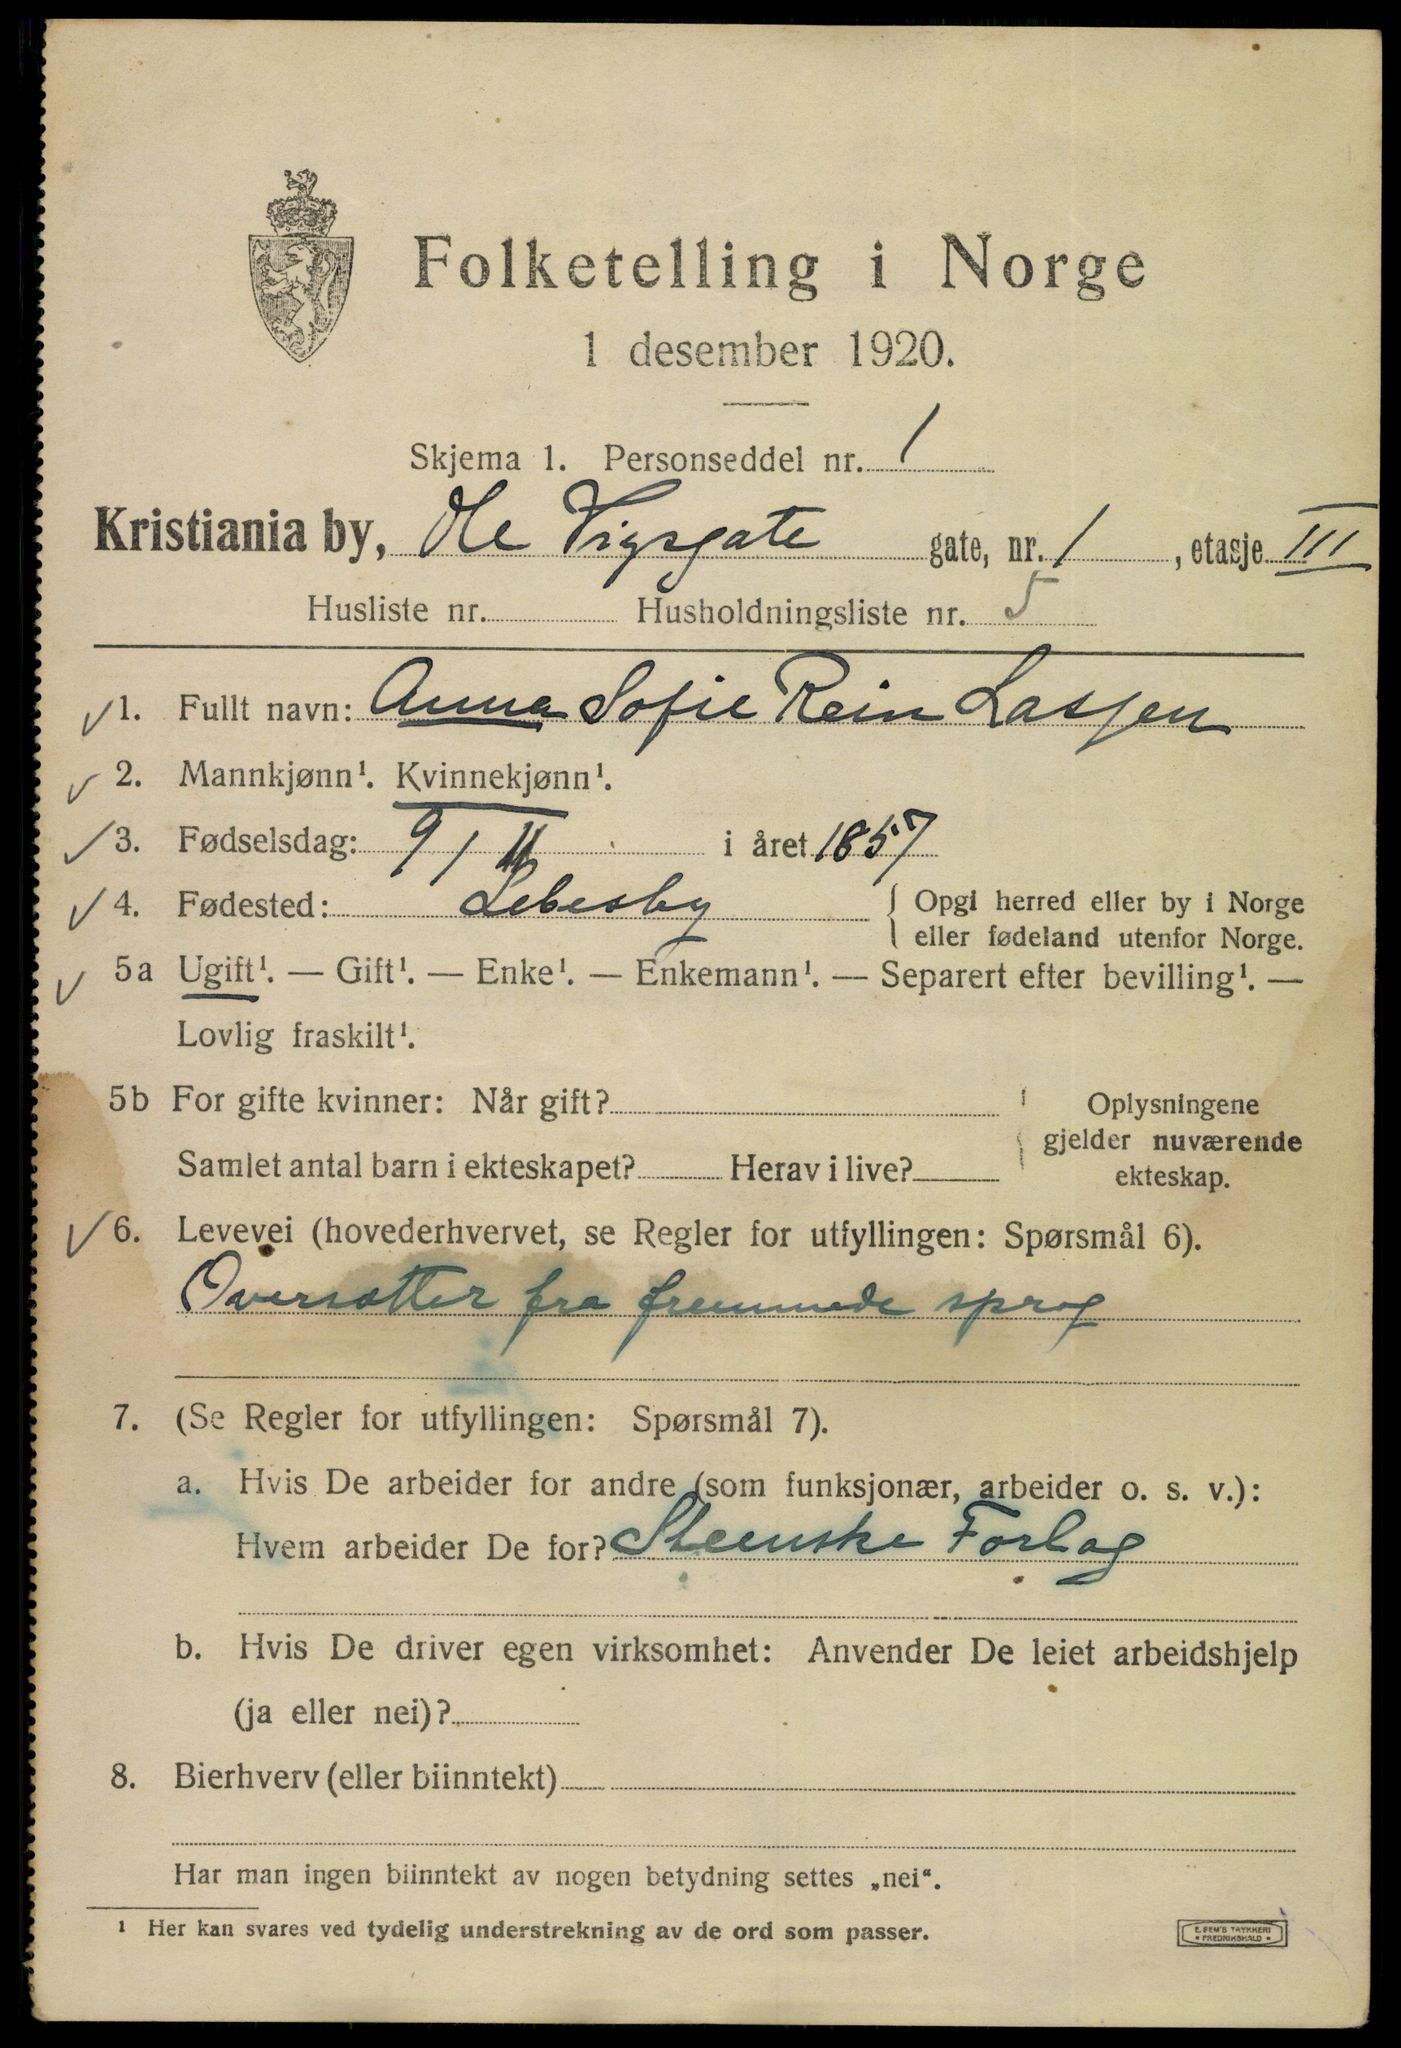 Folketelling i Norge
1 desember 1920.
Skjema 1. Personseddel nr. 1
Kristiania by, Ole Vigsgate gate, nr. 1, etasje III
Husliste nr. Husholdningsliste nr. 5
1. Fullt navn: Anna Sofie Rein Lassen
2. Mannkjønn¹. Kvinnekjønn¹.
3. Fødselsdag: 9/11 i året 1857
4. Fødested: Lebesby { Opgi herred eller by i Norge
eller fødeland utenfor Norge.
5a Ugift¹. — Gift¹. — Enke¹. — Enkemann¹. — Separert efter bevilling¹. —
Lovlig fraskilt¹.
5b For gifte kvinner: Når gift? Oplysningene
gjelder nuværende
Samlet antal barn i ekteskapet? Herav i live? ekteskap.
6. Levevei (hovederhvervet, se Regler for utfyllingen: Spørsmål 6).
Oversætter fra fremmede sprog
7. (Se Regler for utfyllingen: Spørsmål 7).
a. Hvis De arbeider for andre (som funksjonær, arbeider o. s. v.):
Hvem arbeider De for? Steenske Forlag
b. Hvis De driver egen virksomhet: Anvender De leiet arbeidshjelp
(ja eller nei)?
8. Bierhverv (eller biinntekt)
Har man ingen biinntekt av nogen betydning settes „nei“.
¹ Her kan svares ved tydelig understrekning av de ord som passer.
E. SEM'S TRYKKERI
FREDRIKSHALD